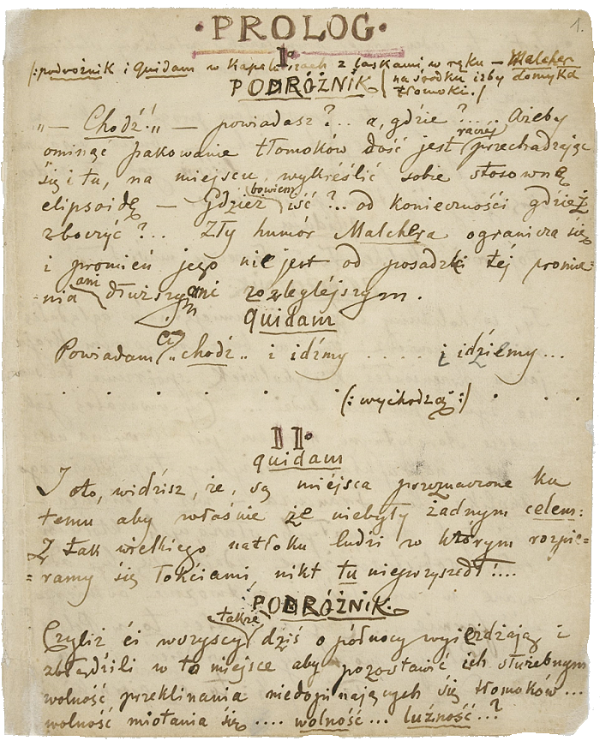 1.
·PROLOG·
I°
(: podróżnik i quidam w kapeluszach z laskami w ręku — Malcher
PODRÓŻNIK (na środku izby domyka
tłomoki./
„— Chodź!„ — powiadasz?... a, gdzie?.... Ażeby
ominąć pakowanie tłomoków dość jest raczej przechadzając
się i tu, na miejscu, wykréślić sobie stosowną
elipsoidę — Gdzież bowiem iść?.. od konieczności gdzież
zboczyć?... Zły humór Malchera ogranicza się
i promień jego nie jest od posadzki téj promie-
nia am dłuższym ani rozleglejszym.
quidam
Powiadam Ci „chodź„ i idźmy ..... i idziemy...
(: wychodzą :)
II°
quidam
I oto, widzisz, że, są miejsca przeznaczone ku
temu aby właśnie że niebyły żadnym celem:
Z tak wielkiego natłoku ludzi w którym rozpie=
=ramy się łokciami, nikt tu nieprzyszedł!...
PODRÓŻNIK.
Czyliż ci wszyscy także dziś o północy wyjeżdżają i
zbłądzili w to miejsce aby pozostawić ich służebnym
wolność przeklinania niedopinających się tłomoków...
wolność miotania się .... wolność... luźność..?